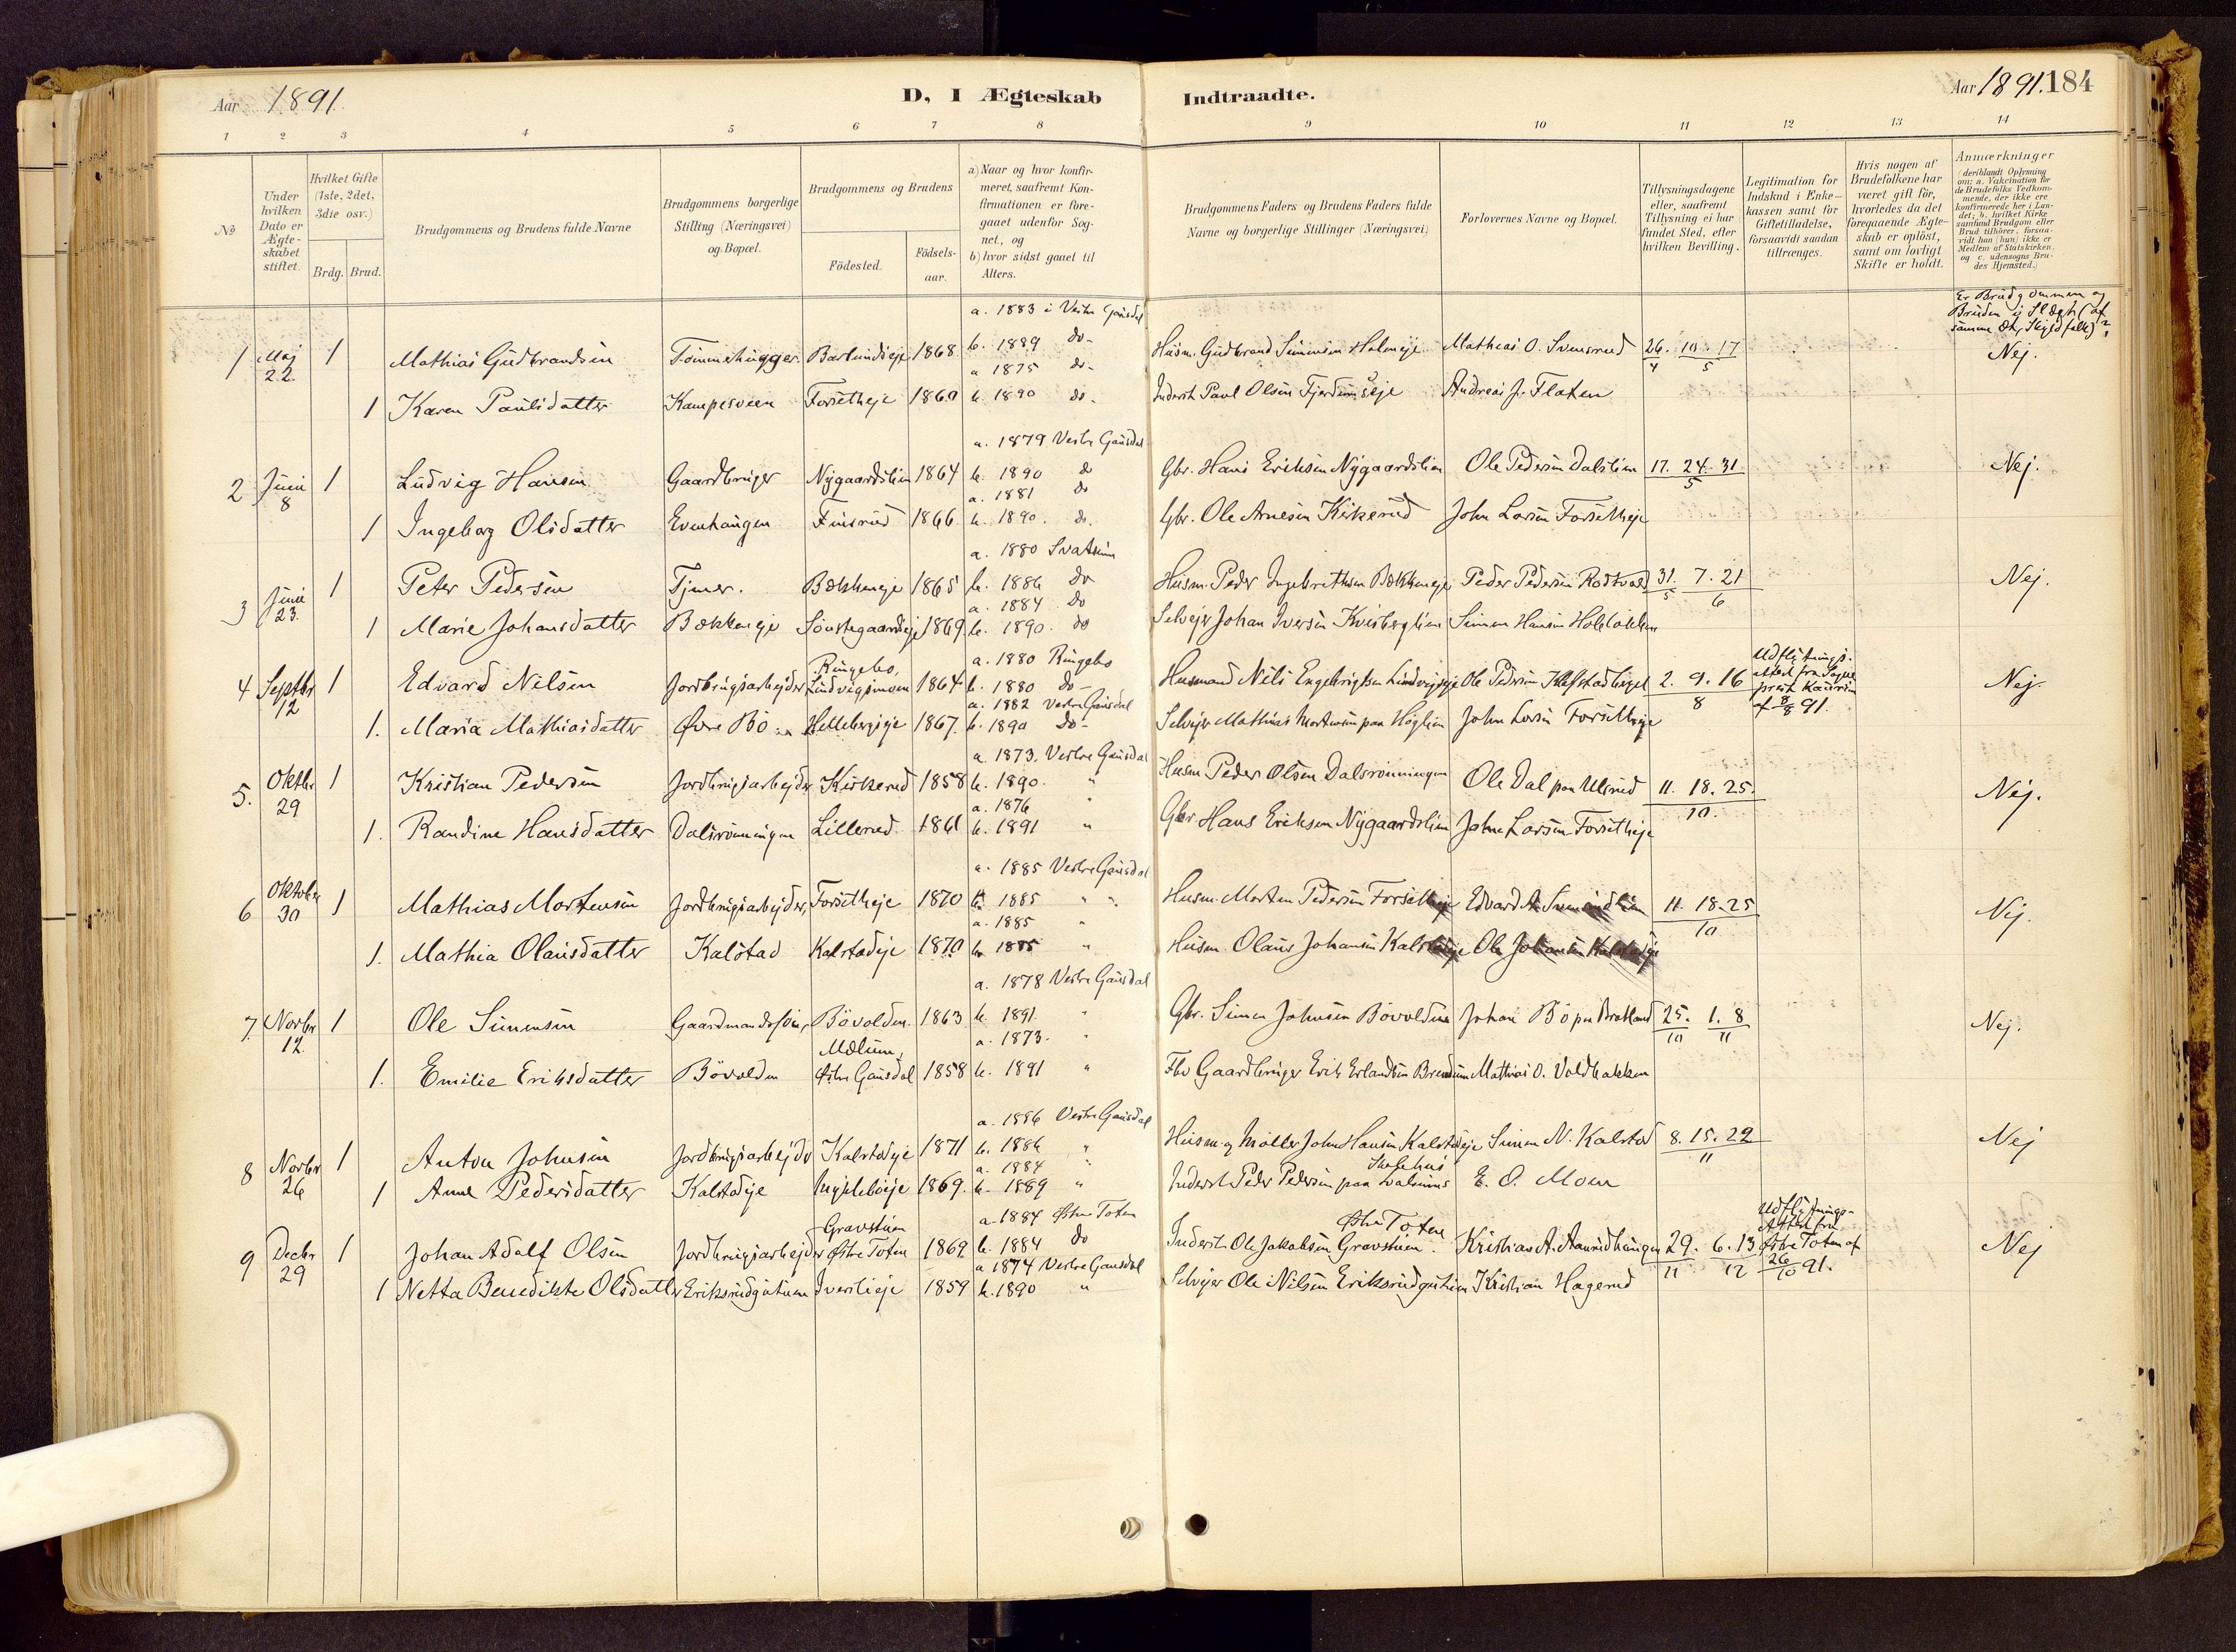 Aar 1891. D, I Ægteskab Indtraadte. Aar 1891. 184
1 2 3 4 5 6 7 8 9 10 11 12 13 14
No
Under hvilken Dato er Ægteskabet stiftet.
Hvilket Gifte (1ste, 2det, 3die osv.)
Brdg. Brud.
Brudgommens og Brudens fulde Navne
Brudgommens borgerlige Stilling (Næringsvei) og Bopæl.
Brudgommens og Brudens
Födested. Födsels-aar.
a) Naar og hvor konfirmeret, saafremt Konfirmationen er foregaaet udenfor Sognet, og
b) hvor sidst gaaet til Alters.
Brudgommens Faders og Brudens Faders fulde Navne og borgerlige Stillinger (Næringsvei)
Forlovernes Navne og Bopæl.
Tillysningsdagene eller, saafremt Tillysning ei har fundet Sted, efter hvilken Bevilling.
Legitimation for Indskud i Enkekassen samt for Giftetilladelse, forsaavidt saadan tiltrænges.
Hvis nogen af Brudefolkene har været gift för, hvorledes da det foregaaende Ægteskab er oplöst, samt om lovligt Skifte er holdt.
Anmærkninger (deriblandt Oplysning om: a. Vakcination for de Brudefolks Vedkommende, der ikke ere konfirmerede her i Landet; b. hvilket Kirkesamfund Brudgom eller Brud tilhörer, forsaavidt han (hun) ikke er Medlem af Statskirken, og c. udensogns Brudes Hjemsted.)
Er Brudgommen og Bruden i Slægt (af samme Æt, Skyldfolk)?
a. 1883 i Vestre Gausdal
1 Maj 22. 1 Mathias Gudbrandsen Tømmerhugger Baslundseje 1868 b. 1889 do- Husm. Gudbrand Simensen Holmeje Mathias O. Svensrud 26. 10. 17 4 5 Nej.
a 1875 do-
1 Karen Paulsdatter Kampesveen Forsetheje 1860 b. 1890 do. Inderst Paul Olsen Fjerdumseje Andreas J. Flaten
a. 1879 Vestre Gausdal
2 Juni 8 1 Ludvig Hansen Gaardbruger Nygaardslien 1864 b. 1890 do Gbr. Hans Eriksen Nygaardslien Ole Pedersen Dalslien 17. 24. 31. 5 Nej.
a. 1881 do
1 Ingeborg Olsdatter Evenhaugen Finsrud 1866. b. 1890. do. Gbr. Ole Arnesen Kirkerud John Larsen Forsetheje
a. 1880 Svatsum
3 Juni 23. 1 Peter Pedersen Tjener. Bækkeneje 1865 b. 1886 do Husm. Peder Ingebrethsen Bækkeneje Peder Pedersen Rostvold 31. 7. 21 5 6 Nej.
a. 1884 do
1 Marie Johansdatter Bækkeneje Sönstegaardseje 1869. b. 1890. do Selvejer Johan Iversen Kvisberglien Simen Hansen Holslökken
Ringebo, a. 1880 Ringebo
4 Septbr 12 1 Edvard Nilsen Jordbrugsarbejder Lundvigsmoen 1864 b. 1880 do- Husmand Nils Engebrigtsen Lundvigseje Ole Pedersen Klefstadhaget 2. 9. 16 8 Udflytnings-attest fra Sogneprest Kaurin af 8/8 91. Nej.
a. 1882 Vestre Gausdal
1. Maria Mathiasdatter Øvre Bö Hellebergseje 1867. b. 1890 do- Selvejer Mathias Mortensen paa Höglien John Larsen Forsetheje
a. 1873. Vestre Gausdal
5. Oktbr 29 1 Kristian Pedersen Jordbrugsarbejder Kirkerud 1858 b. 1890. " Husm Peder Olsen Dalsrönningen Ole Dal paa Ulsrud 11. 18. 25. 10. Nej.
a. 1876 "
1. Randine Hansdatter Dalsrönningen Lillerud. 1861 b. 1891 " Gbr Hans Eriksen Nygaardslien John Larsen Forsetheje
a. 1885 Vestre Gausdal
6 Oktober 30 1 Mathias Mortensen Jordbrugsarbejder, Forsetheje 1870 b. 1885 " Husm. Morten Pedersen Forsetheje Edvard A. 11. 18. 25 10 Nej.
a. 1885 "
1. Mathia Olausdatter Kalstad Kalstadeje 1870 b. 1885 " Husm. Olaus Johansen Kalstadeje Ole Johansen Kalstadeje
a. 1878 Vestre Gausdal
7. Novbr 12. 1 Ole Simensen Gaardmandssön, Bövolden. 1863 b. 1891. " Gbr. Simen Johnsen Bövolden Johan Bö paa Bratland 25. 1. 8 10 11 Nej.
Mælum, a. 1873. "
1. Emilie Eriksdatter Bövolden Østre Gausdal 1858 b. 1891 " Fhv Gaardbruger Erik Erlandsen Bremdum Mathias O. Voldbakken
a. 1886 Vestre Gausdal
8 Novbr 26 1 Anton Johnsen Jordbrugsarbejder Kalstadeje 1871 b. 1886 " Husm. og Möller John Hansen Kalstadeje Simen N. Kalstad 8. 15. 22 11 Nej
a. 1884 "
1 Anne Pedersdatter Kalstadeje 1869. b. 1889 " Inderst Peder Pedersen paa E. O. Moen
Gravstuen a. 1884 Østre Toten Østre Toten
9 Decbr 29 1 Johan Adolf Olsen Jordbrugsarbejder Østre Toten 1862 b. 1884 do Inderst Ole Jakobsen Gravstuen. Kristian A. Aanrudhaugen 29. 6. 13 11 12 Udflytnings-Attest fra Østre Toten af 26/10 91. Nej
a 1874 Vestre Gausdal
1 Netta Benedikte Olsdatter Eriksrudgutuen Iverslieje 1859 b. 1890 " Selvejer Ole Nilsen Eriksrudgutuen Kristian Hagerud